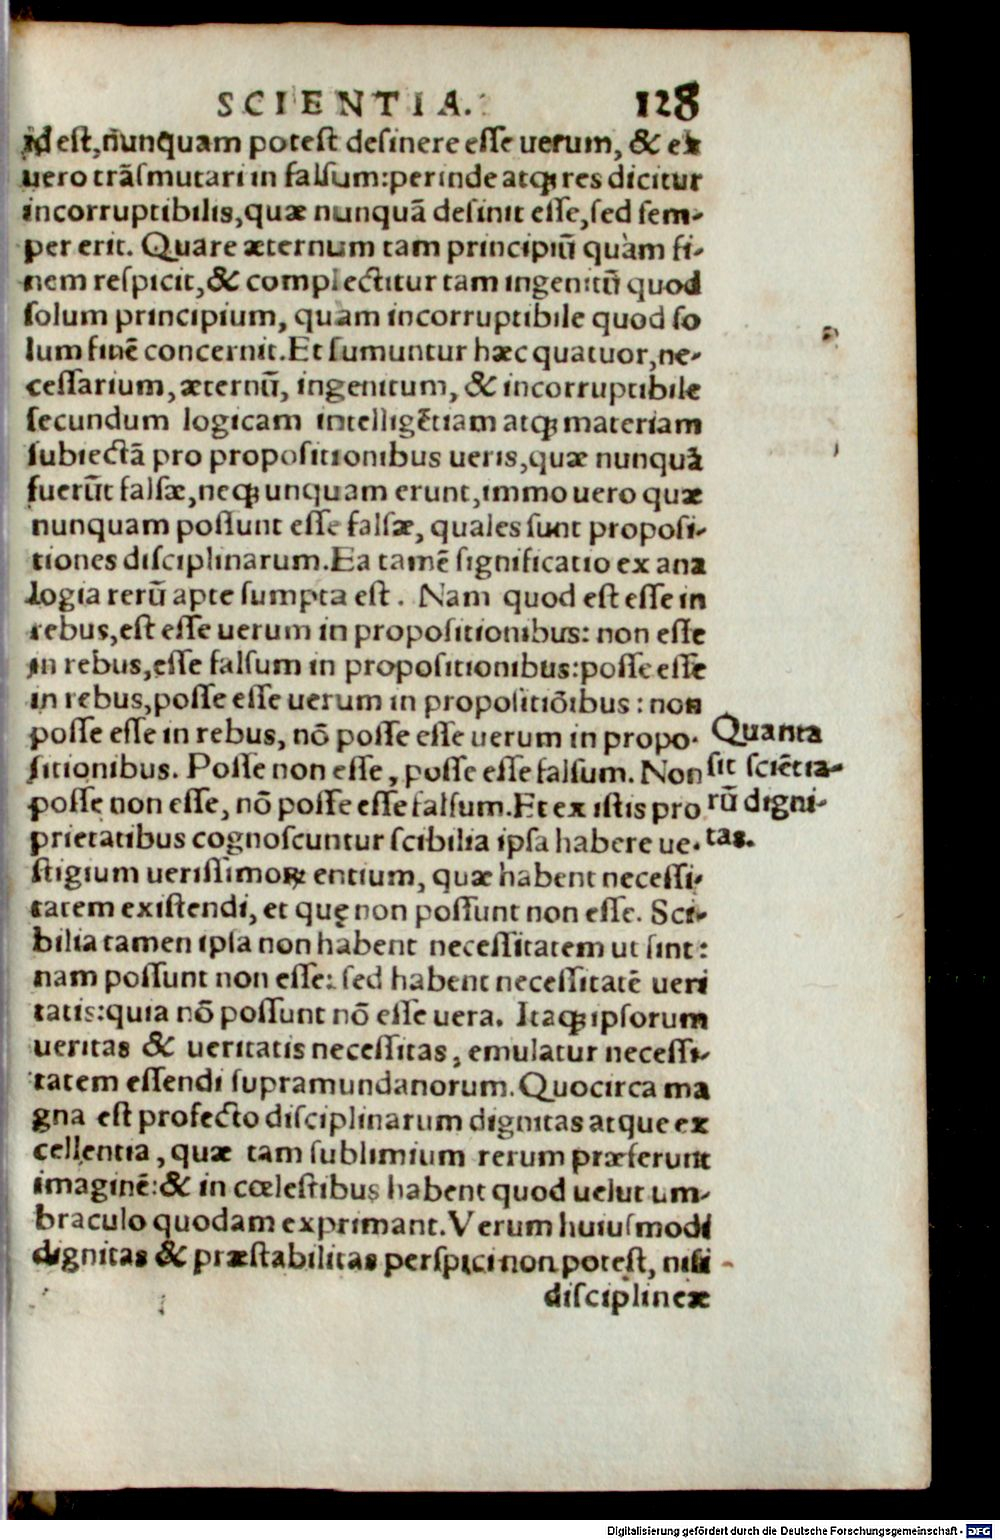 SCIENTIA. 128
id est, nunquam potest desinere esse uerum, & ex
uero trãsmutari in falsum: perinde atqꝫ res dicitur
incorruptibilis, quæ nunquã desinit esse, sed sem-
per erit. Quare æternum tam principiũ quàm fi-
nem respicit, & complectitur tam ingenitũ quod
solum principium, quam incorruptibile quod so
lum finẽ concernit. Et sumuntur hæc quatuor, ne-
cessarium, æternũ, ingenitum, & incorruptibile
secundum logicam intelligẽtiam atqꝫ materiam
subiectã pro propositionibus ueris, quæ nunquã
fuerũt falsæ, neqꝫ unquam erunt, immo uero quæ
nunquam possunt esse falsæ, quales sunt proposi-
tiones disciplinarum. Ea tamẽ significatio ex ana
logia rerũ apte sumpta est. Nam quod est esse in
rebus, est esse uerum in propositionibus: non esse
in rebus, esse falsum in propositionibus: posse esse
in rebus, posse esse uerum in propositiõibus: non
posse esse in rebus, nõ posse esse uerum in propo-
sitionibus. Posse non esse, posse esse falsum. Non
posse non esse, nõ posse esse falsum. Et ex istis pro
prietatibus cognoscuntur scibilia ipsa habere ue-
stigium uerissimoꝝ entium, quæ habent necessi-
tatem existendi, et quę non possunt non esse. Sci-
bilia tamen ipsa non habent necessitatem ut sint:
nam possunt non esse: sed habent necessitatẽ ueri
tatis: quia nõ possunt nõ esse uera. Itaqꝫ ipsorum
ueritas & ueritatis necessitas, emulatur necessi-
tatem essendi supramundanorum. Quocirca ma
gna est profecto disciplinarum dignitas atque ex
cellentia, quæ tam sublimium rerum præferunt
imaginẽ: & in cœlestibus habent quod uelut um-
braculo quodam exprimant. Verum huiusmodi
dignitas & præstabilitas perspici non potest, nisi
disciplineæ
Quanta
sit sciẽtia-
rũ digni-
tas.
Digitalisierung gefördert durch die Deutsche Forschungsgemeinschaft - DFG